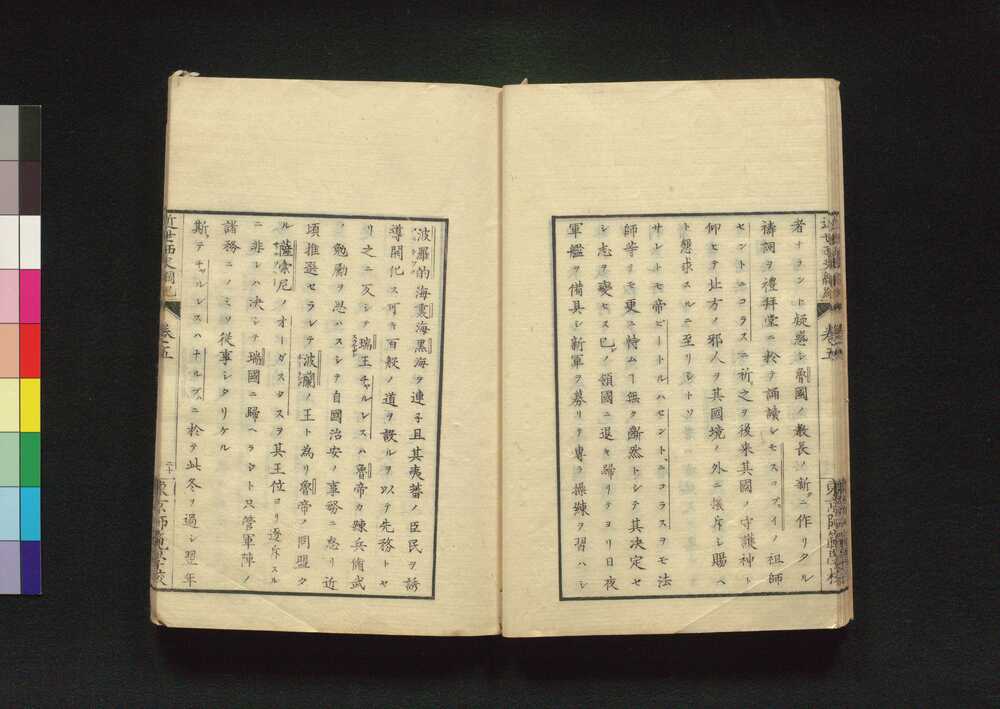 者ナラント疑惑シ魯國ノ教長ノ新ニ作リタル
禱詞ヲ禮拜堂ニ於テ誦讀シモスコヴィノ祖師
セントニコラスニ祈之ヲ後来其國ノ守護神ト
仰セテ北方ノ邪人ヲ其國境ノ外ニ攘斥シ賜ヘ
ト懇求スルニ至リシトソ
サレトモ帝ピートルハセントニコラスヲモ法
師等リモ更ニ恃ムヿ無ク断然トシテ其决定セ
シ志ヲ變セス已ノ領國ニ退キ歸リテヨリ日夜
軍艦ヲ備具シ新軍ヲ募リテ專ラ操練ヲ習ハシ
波羅的海裏海黒海ヲ連子且其夷蕃ノ臣民ヲ誘
導開化ス可キ百般ノ道ヲ設ルヲ以テ先務トセ
リ之ニ反シテ瑞王チャルレスハ魯帝カ練兵脩武
ノ勉勵ヲ思ハスシテ自國治安ノ事務ニ怠リ近
頃推選セラレテ波瀾ノ王ト為リ魯帝ノ同盟タ
ル薩索尼ノオーガスタスヲ其王位ヨリ逐斥スル
ニ非レハ决シテ瑞國ニ歸ヘラシト只管軍陣ノ
諸務ニノミソ從事シタリケル
斯テチャルレスハナルヴニ於テ此冬ヲ過シ翌年
近世西史綱紀
卷之五
二十
東京師範學校